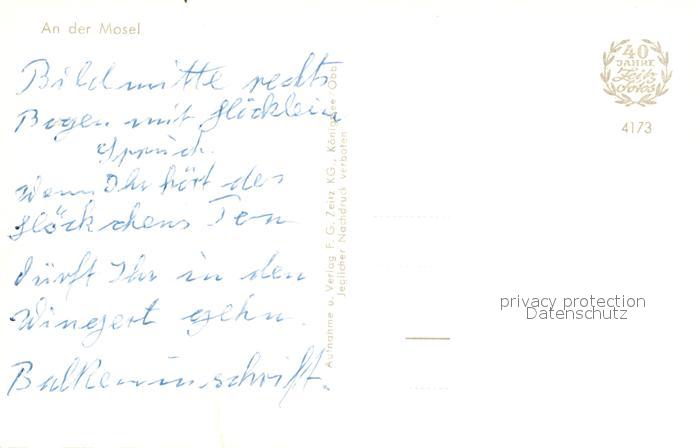 An der Mosel
Bildmitte rechts
Bogen mit Glöcklein
Spruch.
Wenn Ihr hört des
Glöckchens Ton
dürft Ihr in den
Wingert gehn.
Balkeninschrift.
Aufnahme u. Verlag F. G. Zeitz KG., Königssee/Obb.
Jeglicher Nachdruck verboten
40
JAHRE
Zeitz
Fotos
4173
privacy protection
Datenschutz